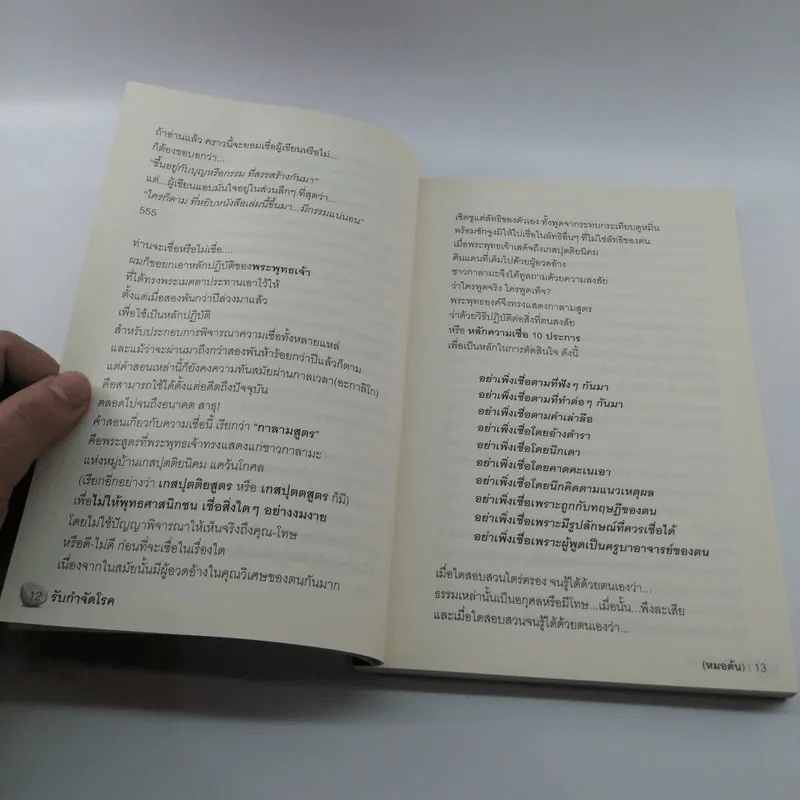 ถ้าอ่านแล้ว คราวนี้จะยอมเชื่อผู้เขียนหรือไม่...
ก็ต้องขอบอกว่า...
"ขึ้นอยู่กับบุญหรือกรรม ที่สรรสร้างกันมา"
แต่...ผู้เขียนแอบมั่นใจอยู่ในส่วนลึกๆ ที่สุดว่า...
"ใครก็ตาม ที่หยิบหนังสือเล่มนี้ขึ้นมา...มีกรรมแน่นอน"
555
ท่านจะเชื่อหรือไม่เชื่อ....
ผมก็ขอยกเอาหลักปฏิบัติของพระพุทธเจ้า
ที่ได้ทรงพระเมตตาประทานเอาไว้ให้
ตั้งแต่เมื่อสองพันกว่าปีล่วงมาแล้ว
เพื่อใช้เป็นหลักปฏิบัติ
สำหรับประกอบการพิจารณาความเชื่อทั้งหลายแหล่
และแม้ว่าจะผ่านมาถึงกว่าสองพันห้าร้อยกว่าปีแล้วก็ตาม
แต่คำสอนเหล่านี้ก็ยังคงความทันสมัยผ่านกาลเวลา(อะกาลิโก)
คือสามารถใช้ได้ตั้งแต่อดีตถึงปัจจุบัน
ตลอดไปจนถึงอนาคต สาธุ!
คำสอนเกี่ยวกับความเชื่อนี้ เรียกว่า "กาลามสูตร"
คือพระสูตรที่พระพุทธเจ้าทรงแสดงแก่ชาวกาลามะ
แห่งหมู่บ้านเกสปุตติยนิคม แคว้นโกศล
(เรียกอีกอย่างว่า เกสปุตติยสูตร หรือ เกสปุตตสูตร ก็มี)
เพื่อไม่ให้พุทธศาสนิกชน เชื่อสิ่งใดๆ อย่างงมงาย
โดยไม่ใช้ปัญญาพิจารณาให้เห็นจริงถึงคุณ-โทษ
หรือดี-ไม่ดี ก่อนที่จะเชื่อในเรื่องใด
เนื่องจากในสมัยนั้นมีผู้อวดอ้างในคุณวิเศษของตนกันมาก
12 | รับกำจัดโรค
เชิดชูแต่ลัทธิของตัวเอง ทั้งพูดจากระทบกระเทียบดูหมิ่น
พร้อมชักจูงมิให้ไปเชื่อในลัทธิอื่นๆ ที่ไม่ใช่ลัทธิของตน
เมื่อพระพุทธเจ้าเสด็จถึงเกสปุตติยนิคม
ดินแดนที่เต็มไปด้วยผู้อวดอ้าง
ชาวกาลามะจึงได้ทูลถามด้วยความสงสัย
ว่าใครพูดจริง ใครพูดเท็จ?
พระพุทธองค์จึงทรงแสดงกาลามสูตร
ว่าด้วยวิธีปฏิบัติต่อสิ่งที่ตนสงสัย
หรือ หลักความเชื่อ 10 ประการ
เพื่อเป็นหลักในการตัดสินใจ ดังนี้
อย่าเพิ่งเชื่อตามที่ฟังๆ กันมา
อย่าเพิ่งเชื่อตามที่ทำต่อๆ กันมา
อย่าเพิ่งเชื่อตามคำเล่าลือ
อย่าเพิ่งเชื่อโดยอ้างตำรา
อย่าเพิ่งเชื่อโดยนึกเดา
อย่าเพิ่งเชื่อโดยคาดคะเนเอา
อย่าเพิ่งเชื่อโดยนึกคิดตามแนวเหตุผล
อย่าเพิ่งเชื่อเพราะถูกกับทฤษฎีของตน
อย่าเพิ่งเชื่อเพราะมีรูปลักษณ์ที่ควรเชื่อได้
อย่าเพิ่งเชื่อเพราะผู้พูดเป็นครูบาอาจารย์ของตน
เมื่อใดสอบสวนไตร่ตรอง จนรู้ได้ด้วยตนเองว่า...
ธรรมเหล่านั้นเป็นอกุศลหรือมีโทษ...เมื่อนั้น...พึงละเสีย
และเมื่อใดสอบสวนจนรู้ได้ด้วยตนเองว่า...
(หมอต้น) | 13